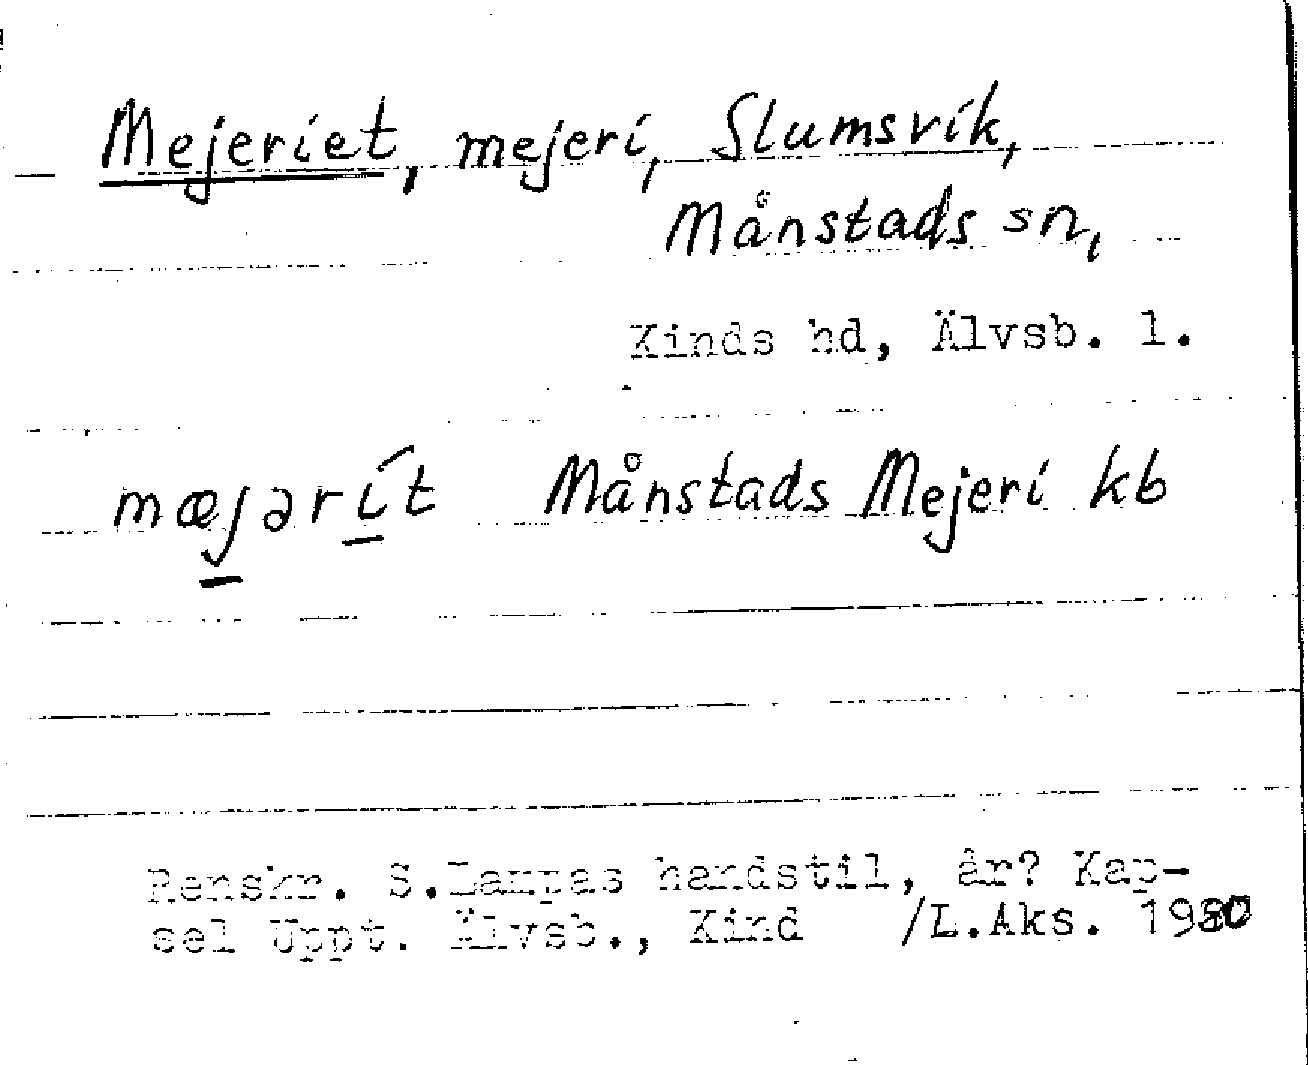 Mejeriet, mejeri, Slumsvik,
Månstads sn,
Kinds hd, Älvsb. l.
mæjərít Månstads Mejeri kb
Renskr. S.Lampas handstil, år? Kap-
sel Uppt. Älvsb., Kind /L.Aks. 1980